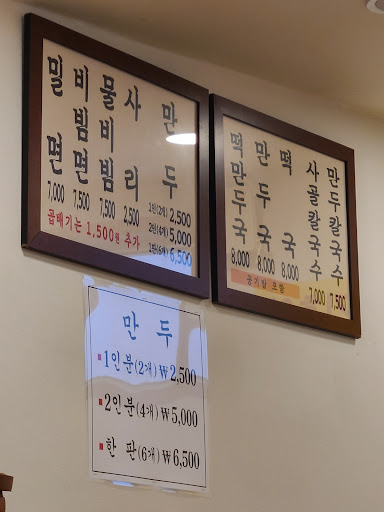 밀면 7,000
비빔면 7,500
물비빔 7,500
사리 2,500
만두
1인(2개) 2,500
2인(4개) 5,000
1판(6개) 6,500
곱배기는 1,500원 추가
떡만두국 8,000
만두국 8,000
떡국 8,000
사골칼국수 7,000
만두칼국수 7,500
공기밥 포함
만두
1인분(2개) ₩2,500
2인분(4개) ₩5,000
한 판(6개) ₩6,500